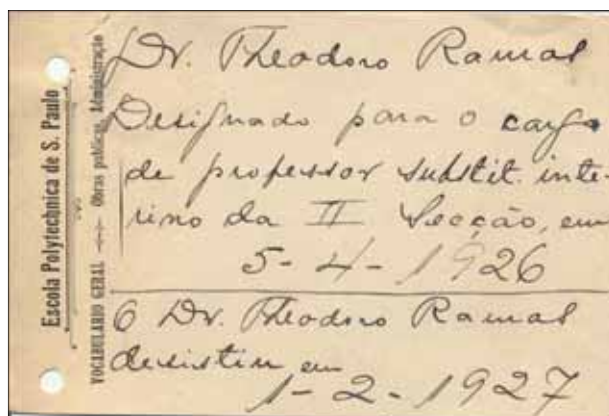 Escola Polytechnica de S. Paulo
VOCABULARIO GERAL — Obras publicas, Administração
Dr. Theodoro Ramos
Designado para o cargo
de professor substit. inte-
rino da II Secção, em
5-4-1926
O Dr. Theodoro Ramos
desistiu em
1-2-1927